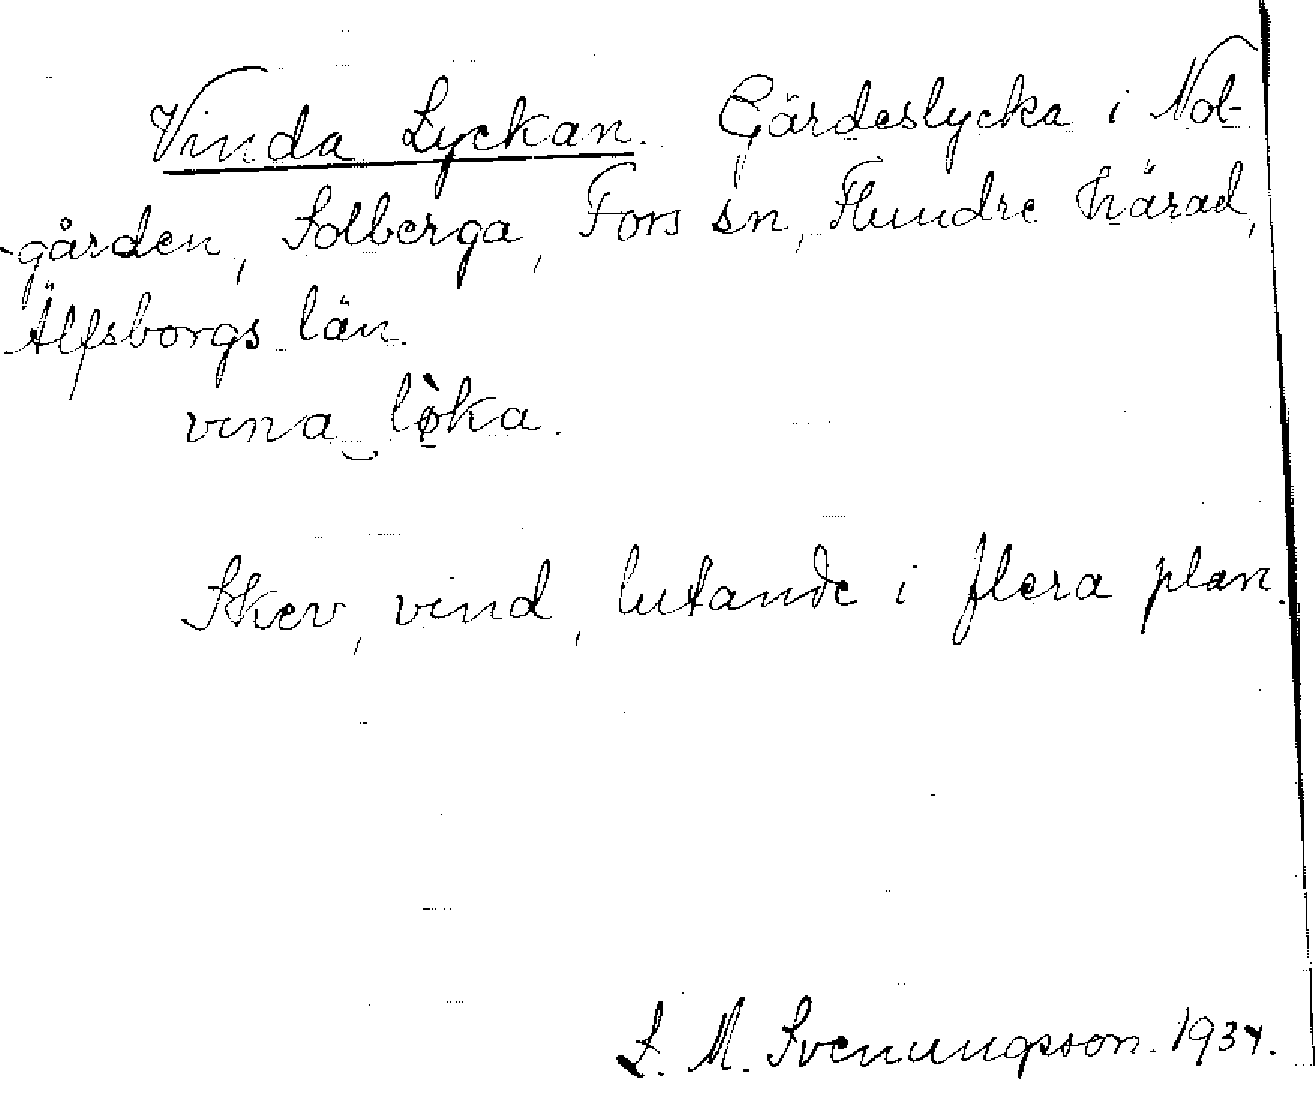 Vinda Lyckan. Gärdeslycka i Not-
gården, Solberga, Fors sn, Flundre härad,
Älfsborgs län.
vina‿lø̀ka.
Skev, vind, lutande i flera plan.
L. M. Svenungsson. 1934.